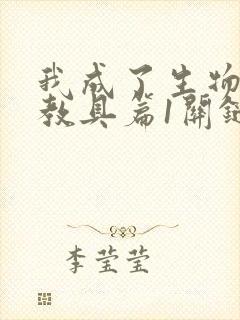 我成了生物
教具篇1關鍵
李莹莹